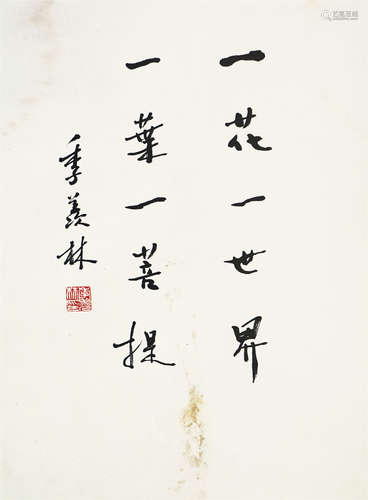 一花一世界
一葉一菩提
季羡林